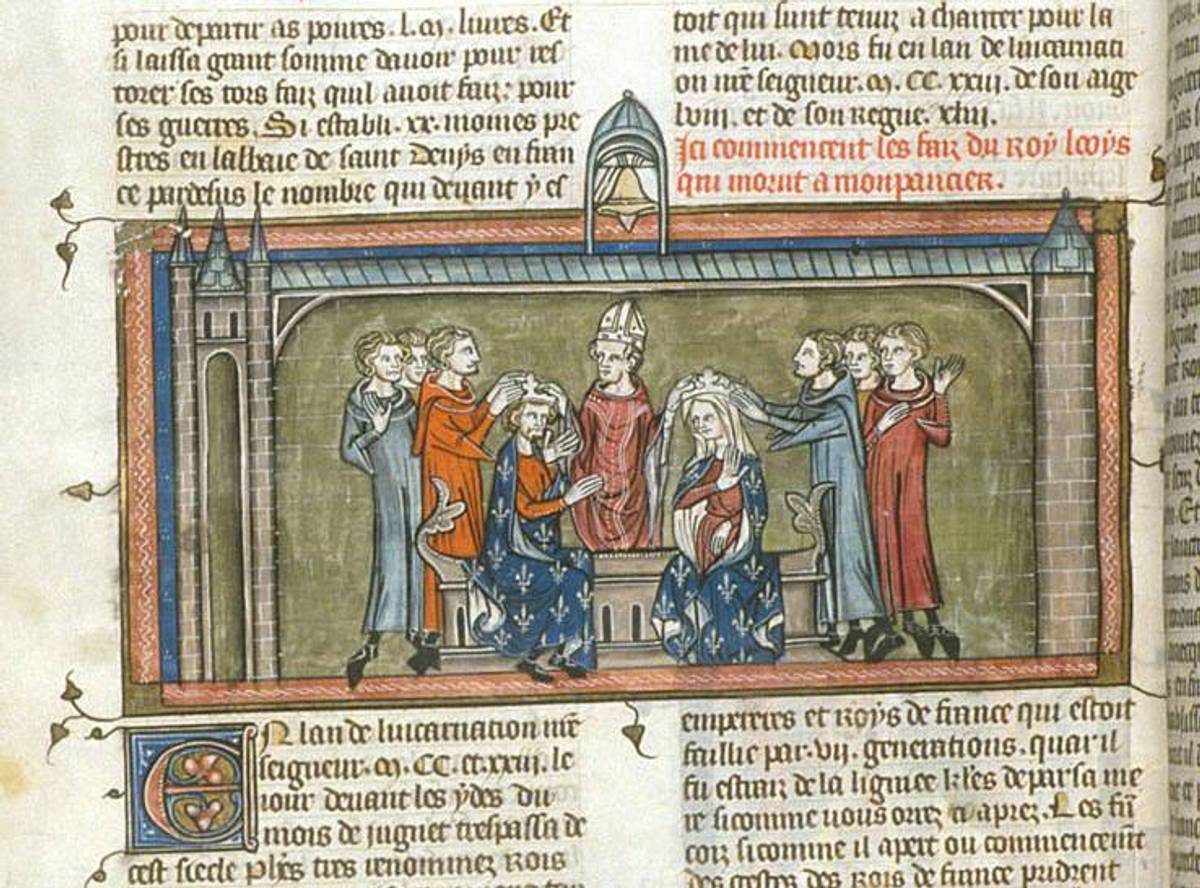 pour departir as poures. l. m. liures. Et
si laissa grant somme dauoir pour res
torer ses tors faiz quil auoit faiz: pour
ses guerres. Si establi. xx. moines pre
stres en labbaie de saint Denys en fran
ce pardesus le nombre qui deuant y es
toit qui sunt tenuz a chanter pour la
me de lui. Mors fu en lan de lincarnati
on nr̄e seigneur. m. CC. xxiii. de son aage
lviii. et de son regne. xliii.
Ici commencent les faiz du roy looys
qui morut a monpancier.
EN lan de lincarnation nr̄e
seigneur. m. CC. et. xxiii. le
iour deuant les ydes du
mois de jugnet trespassa de
cest siecle phes tres renommez rois
empereres et roys de france qui estoit
faillie par. vii. generations. quar il
fu estraiz de la lignee kl'es de par sa me
re sicomme uous orrez ci aprez. Les
coiz sicomme il apert ou commencemt
des gestes des rois de france prudrent